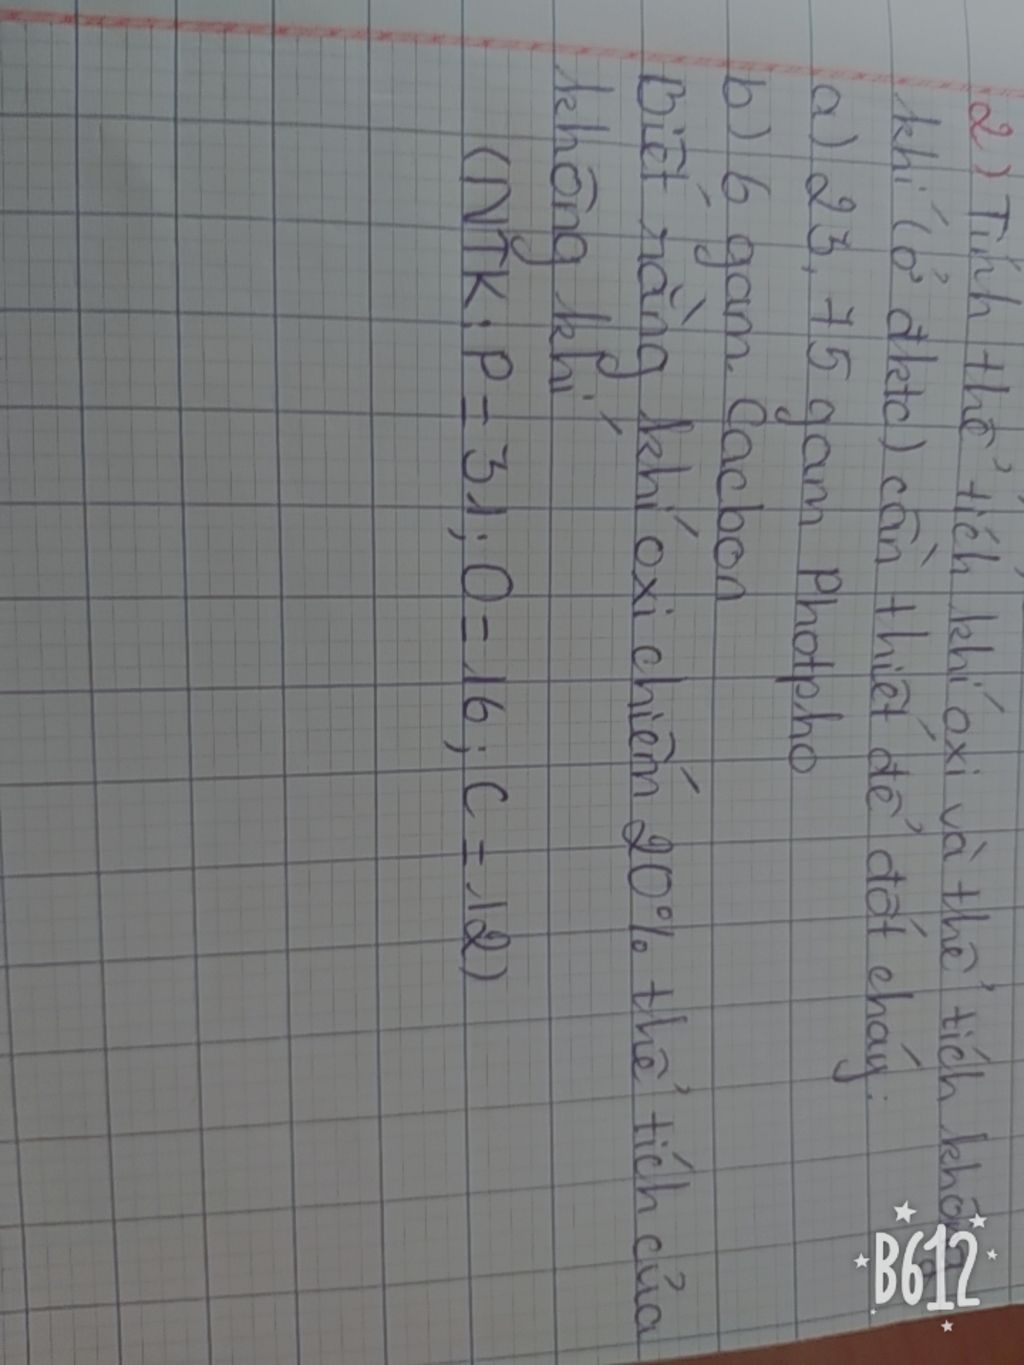 2) Tính thể tích khí oxi và thể tích không
khí (ở đktc) cần thiết để đốt cháy:
a) 23,75 gam Photpho
b) 6 gam Cacbon
Biết rằng khí oxi chiếm 20% thể tích của
không khí
(NTK: P = 31; O = 16; C = 12)
B612